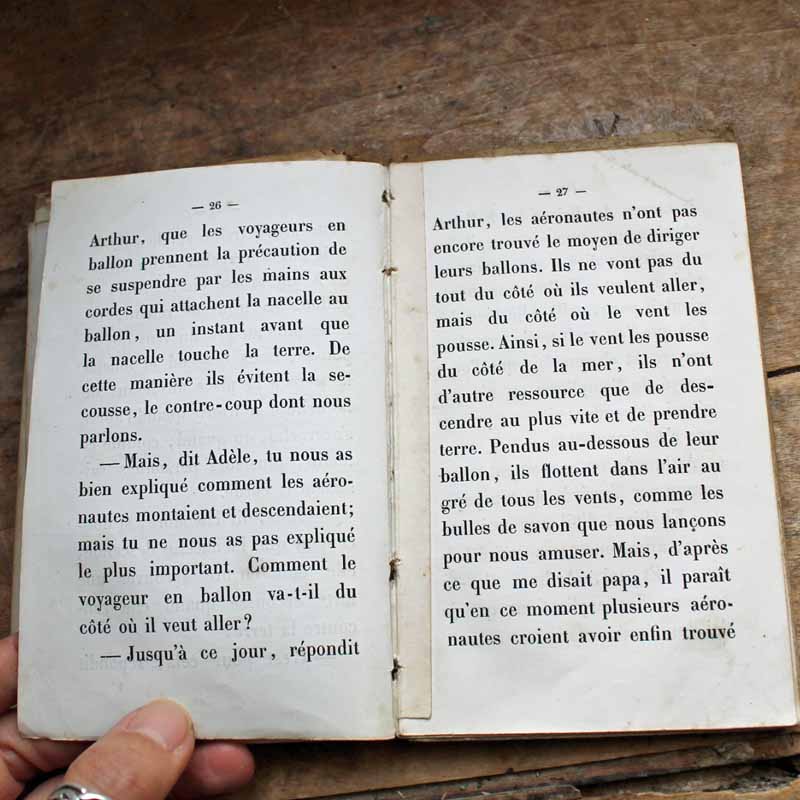 — 26 —
Arthur, que les voyageurs en
ballon prennent la précaution de
se suspendre par les mains aux
cordes qui attachent la nacelle au
ballon, un instant avant que
la nacelle touche la terre. De
cette manière ils évitent la se-
cousse, le contre-coup dont nous
parlons.
— Mais, dit Adèle, tu nous as
bien expliqué comment les aéro-
nautes montaient et descendaient;
mais tu ne nous as pas expliqué
le plus important. Comment le
voyageur en ballon va-t-il du
côté où il veut aller?
— Jusqu'à ce jour, répondit
— 27 —
Arthur, les aéronautes n'ont pas
encore trouvé le moyen de diriger
leurs ballons. Ils ne vont pas du
tout du côté où ils veulent aller,
mais du côté où le vent les
pousse. Ainsi, si le vent les pousse
du côté de la mer, ils n'ont
d'autre ressource que de des-
cendre au plus vite et de prendre
terre. Pendus au-dessous de leur
ballon, ils flottent dans l'air au
gré de tous les vents, comme les
bulles de savon que nous lançons
pour nous amuser. Mais, d'après
ce que me disait papa, il paraît
qu'en ce moment plusieurs aéro-
nautes croient avoir enfin trouvé